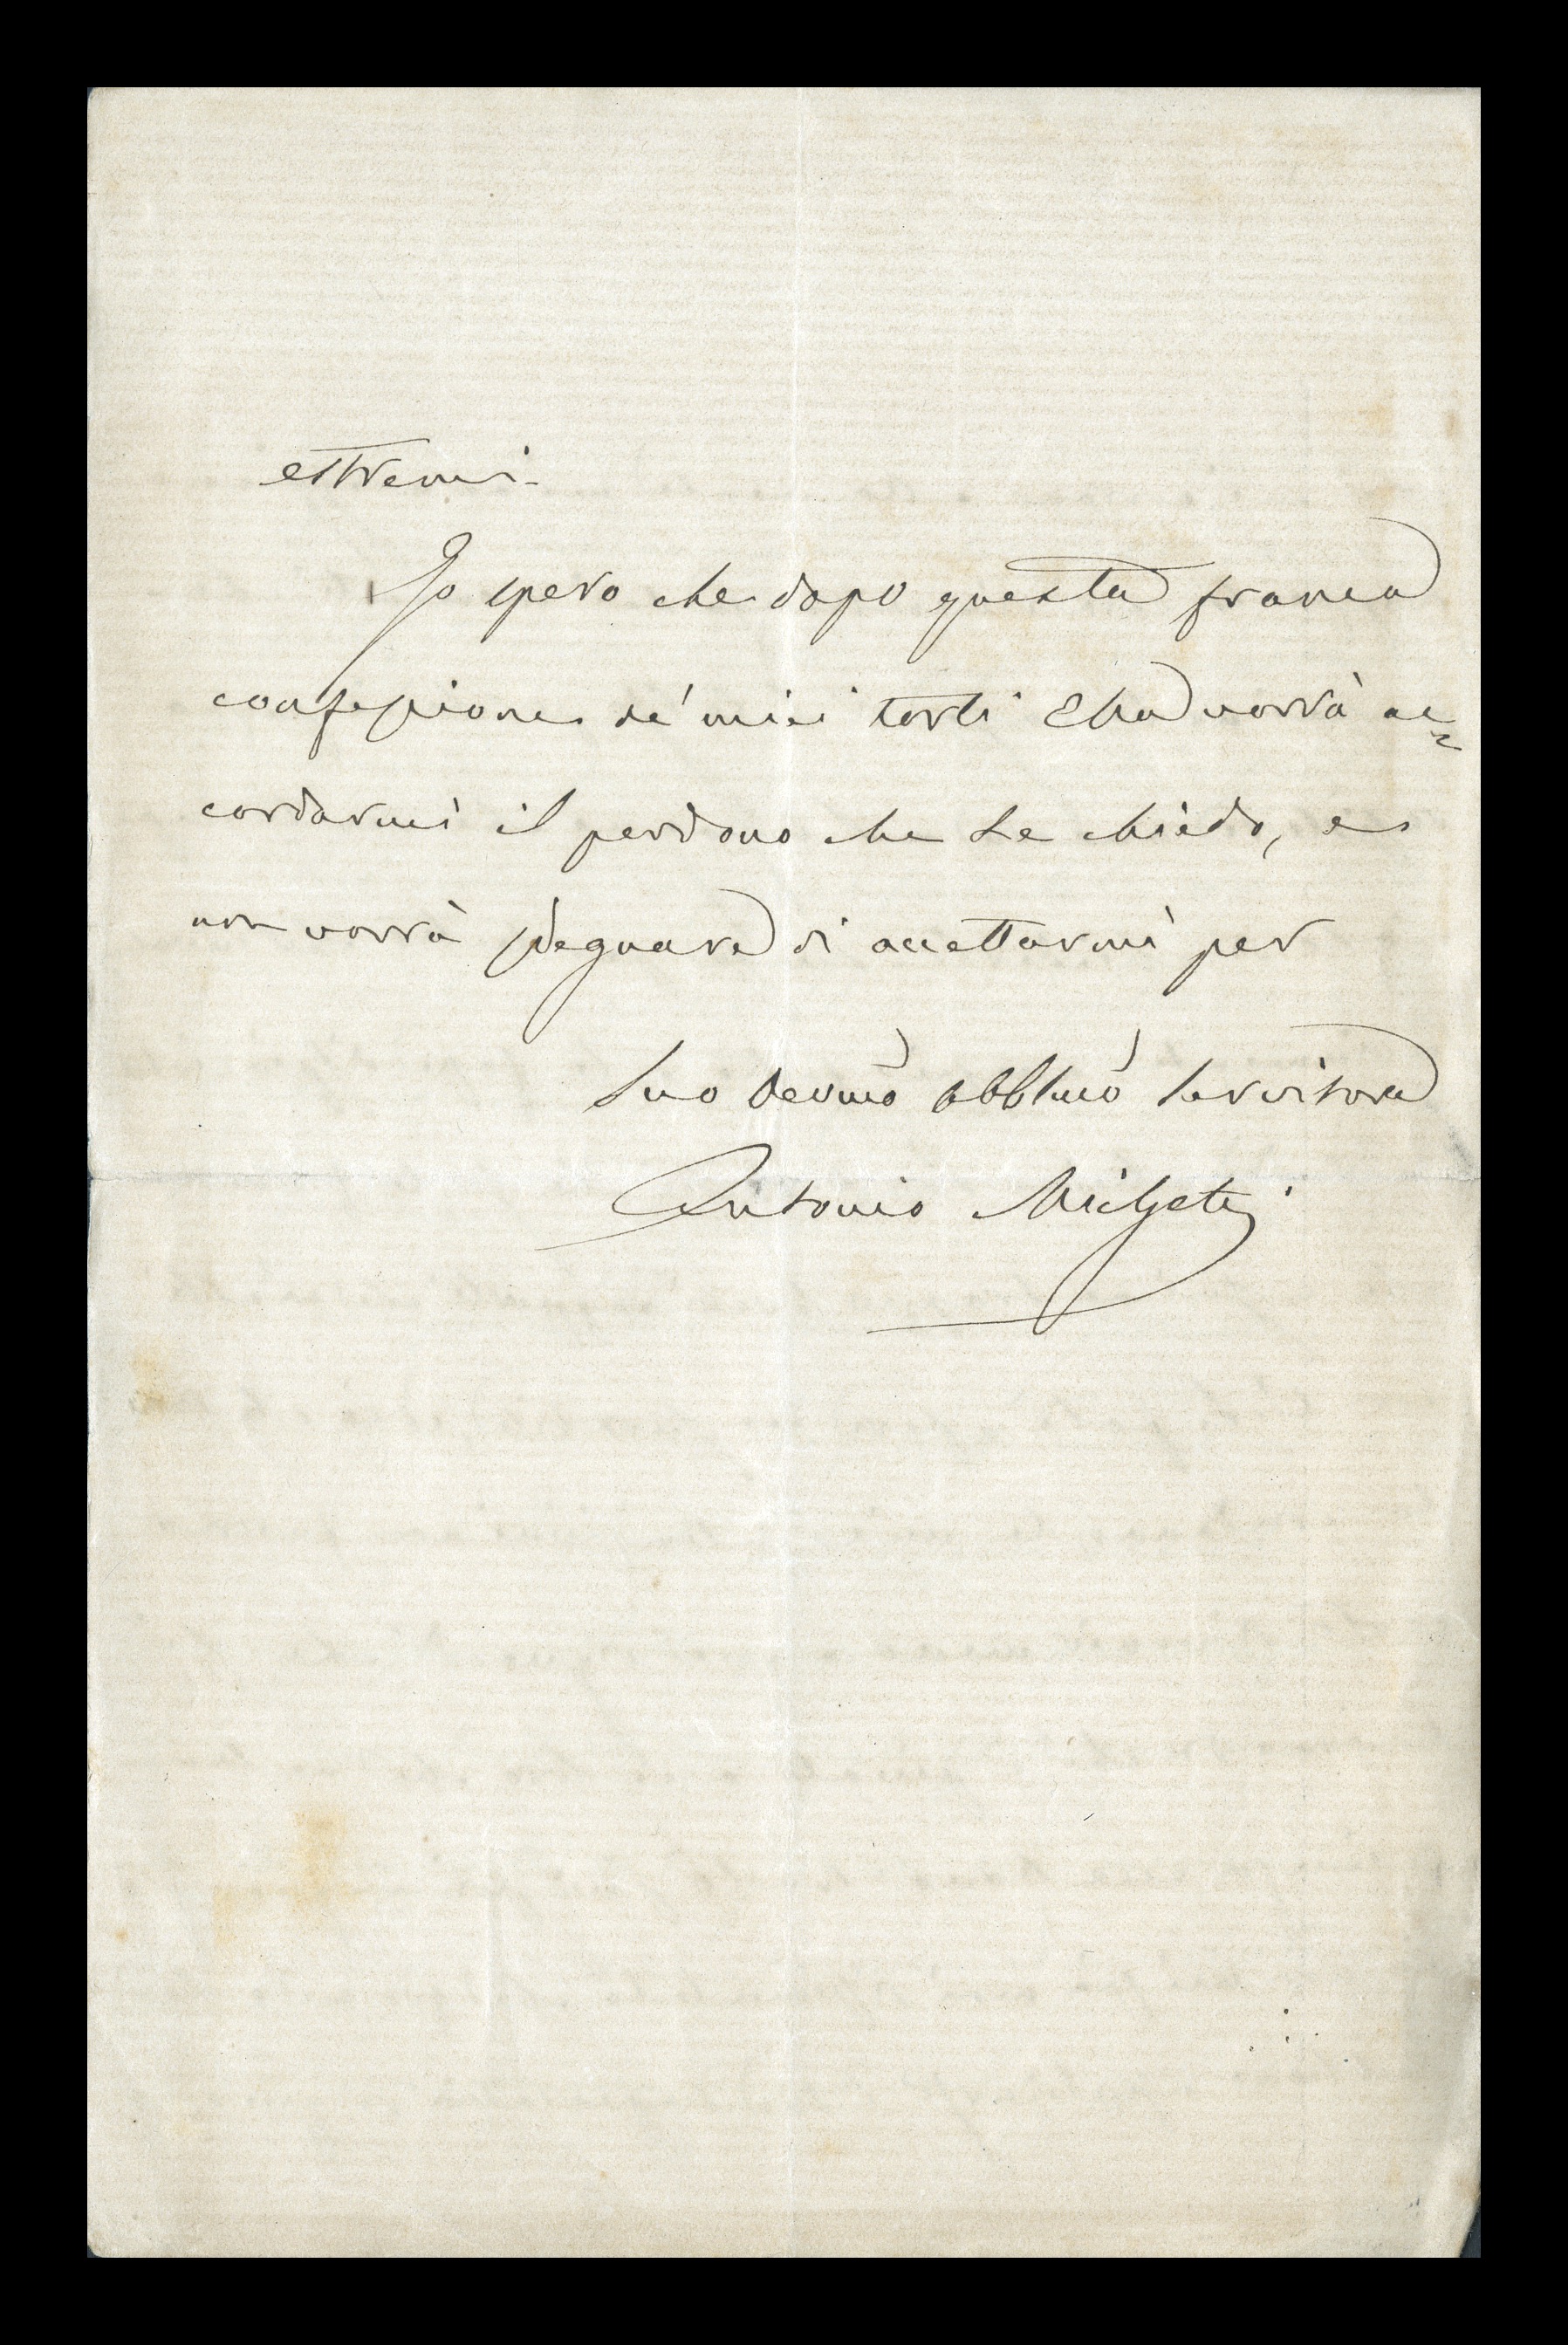 estremi.
Io spero che dopo questa franca
confessione de' miei torti Ella vorrà ac=
cordarmi il perdono che Le chiedo, e
non vorrà sdegnare di accettarmi per
Suo devmo obblmo Servitore
Antonio